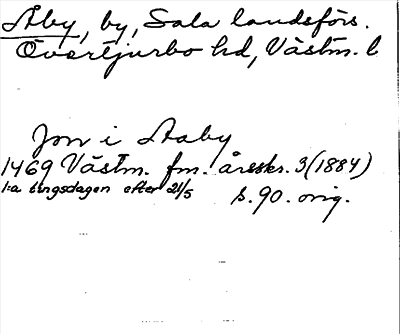 Åby, by, Sala landsförs.
Övertjurbo hd, Västm. l.
Jon i Aaby
1469 Västm. fm. årsskr. 3 (1884)
1:a tingsdagen efter 21/5 s. 90. orig.